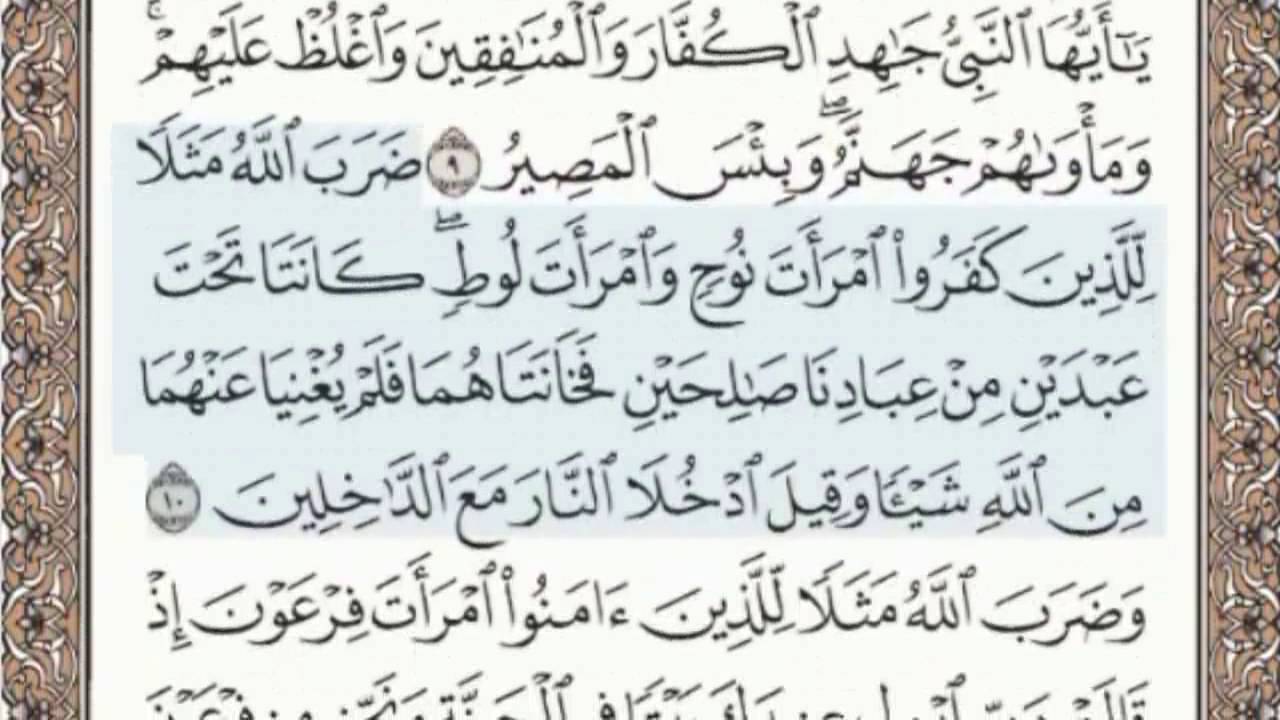 يَـٰٓأَيُّهَا ٱلنَّبِىُّ جَـٰهِدِ ٱلْكُفَّارَ وَٱلْمُنَـٰفِقِينَ وَٱغْلُظْ عَلَيْهِمْ ۚ
وَمَأْوَىٰهُمْ جَهَنَّمُ ۖ وَبِئْسَ ٱلْمَصِيرُ ٩ ضَرَبَ ٱللَّهُ مَثَلًا
لِّلَّذِينَ كَفَرُوا۟ ٱمْرَأَتَ نُوحٍ وَٱمْرَأَتَ لُوطٍ ۖ كَانَتَا تَحْتَ
عَبْدَيْنِ مِنْ عِبَادِنَا صَـٰلِحَيْنِ فَخَانَتَاهُمَا فَلَمْ يُغْنِيَا عَنْهُمَا
مِنَ ٱللَّهِ شَيْـًٔا وَقِيلَ ٱدْخُلَا ٱلنَّارَ مَعَ ٱلدَّٰخِلِينَ ١٠
وَضَرَبَ ٱللَّهُ مَثَلًا لِّلَّذِينَ ءَامَنُوا۟ ٱمْرَأَتَ فِرْعَوْنَ إِذْ